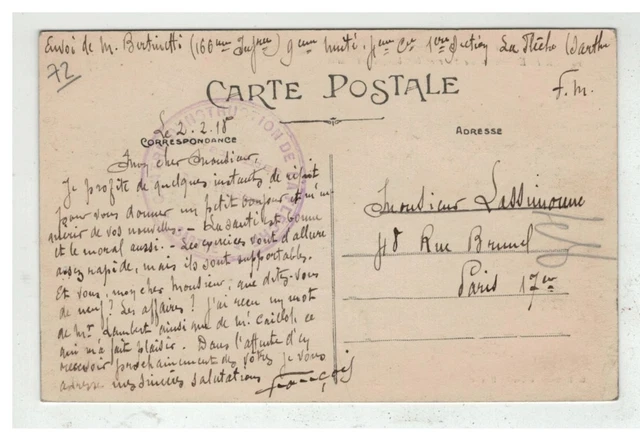 Envoi de M. Bertinetti (160eme Infrie) 9eme unité. 4eme Cie 1ere Section La Flèche (Sarthe
72
CARTE POSTALE
F.M.
Le 2.2.18
CORRESPONDANCE
ADRESSE
Mon cher Monsieur,
Je profite de quelques instants de répit
pour vous donner un petit bonjour et m'en
quérir de vos nouvelles. - La santé est bonne
et le moral aussi. - Les exercices vont d'allure
assez rapide, mais ils sont supportables.
Et vous, mon cher Monsieur, que dites-vous
de neuf? Les affaires? J'ai reçu un mot
de Mr Lambert ainsi que de Mr Caillot, ce
qui m'a fait plaisir. Dans l'attente d'en
recevoir prochainement des vôtres je vous
adresse mes sincères salutations
Monsieur Lassimoune
48 Rue Brunel
Paris 17e
INSTRUCTION DE